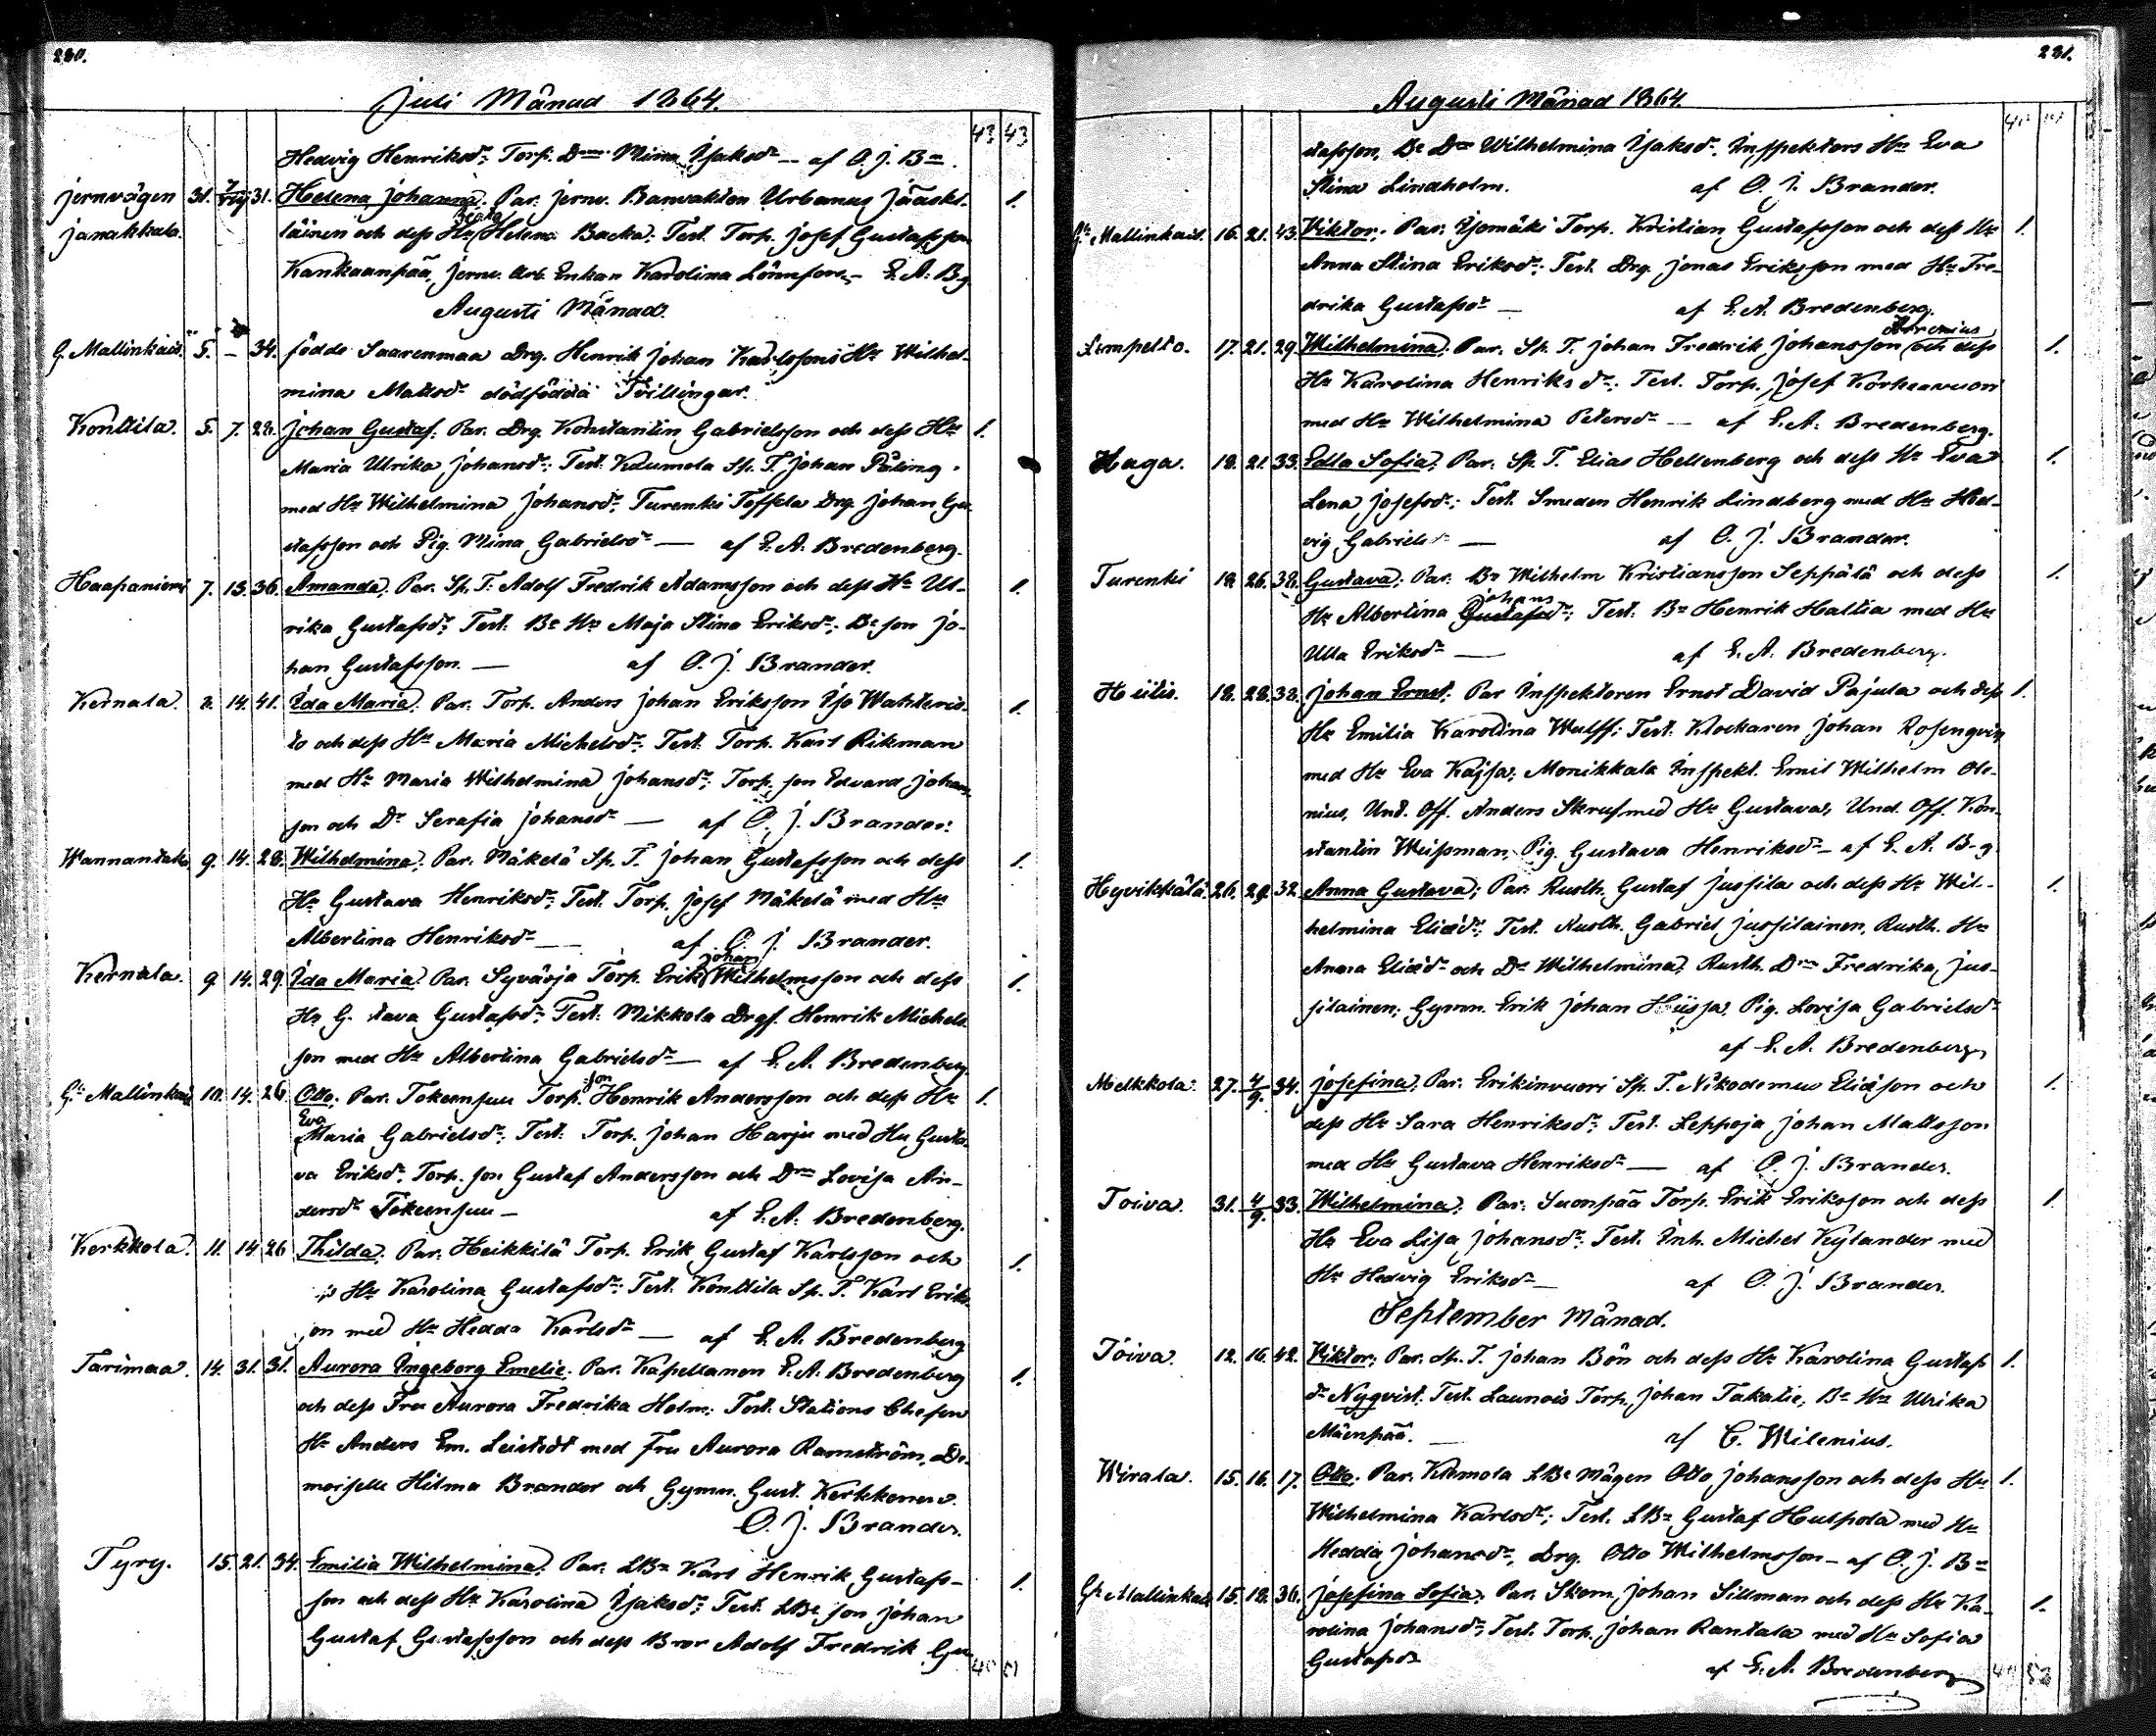 230.
Juli Månad 1864.
43 43
Hedvig Henriksdr; Torp. Drn Mina Isaksdr — af O. J. Br.
Jernvägen 31. 7/8 31. Helena Johanna. Par. Jernv. Banvakten Urbanus Jääske- 1.
Janakkala. läinen och dess Hu Beata Helena Backa; Test. Torp. Josef Gustafsson
Kankaanpää, Jernv. Arb. Enkan Karolina Lönnfors — E. A. B-g.
Augusti Månad.
G. Mallinkais. 5. — 34. födde Saarenmaa Drg. Henrik Johan Karlssons Hu Wilhel-
mina Mattsdr dödfödda Tvillingar.
Konttila. 5. 7. 28. Johan Gustaf; Par. Drg. Konstantin Gabrielsson och dess Hu 1.
Maria Ulrika Johansdr; Test. Kdumola Sp. T. Johan Påling
med Hu Wilhelmina Johansdr, Turenki Toffela Drg. Johan Gu-
stafsson och Pig. Mina Gabrielsdr — af E. A. Bredenberg.
Haapaniemi 7. 13. 36. Amanda, Par. Sp. T. Adolf Fredrik Adamsson och dess Hu Ul- 1.
rika Gustafsdr; Test. Be Hu Maja Stina Eriksdr; Be son Jo-
han Gustafsson. — af O. J. Brander.
Kernala. 8. 14. 41. Ida Maria, Par. Torp. Anders Johan Eriksson Iso Wahteris- 1.
to och dess Hu Maria Michelsdr; Test. Torp. Karl Rikman
med Hu Maria Wilhelmina Johansdr; Torp. son Edvard Johans-
son och Dr Serafia Johansdr — af O. J. Brander.
Wannantaka 9. 14. 28. Wilhelmina; Par. Mäkelä Sp. T. Johan Gustafsson och dess 1.
Hu Gustava Henriksdr; Test. Torp. Josef Mäkelä med Hu
Albertina Henriksdr — af O. J. Brander.
Kernala. 9. 14. 29. Ida Maria. Par. Syväoja Torp. Erik Johan Wilhelmsson och dess 1.
Hu G. stava Gustafsdr; Test. Nikkola Drg. Henrik Michels-
son med Hu Albertina Gabrielsdr — af E. A. Bredenberg.
G. Mallinkais 10. 14. 26. Otto; Par. Tokeensuu Torp. son Henrik Andersson och dess Hu 1.
Eva Maria Gabrielsdr; Test. Torp. Johan Harju med Hu Gusta-
va Eriksdr. Torp. son Gustaf Andersson och Drn Lovisa An-
dersdr Tokeensuu — af E. A. Bredenberg.
Kerkkola. 11. 14 26 Thilda, Par. Heikkilä Torp. Erik Gustaf Karlsson och 1.
Hu Karolina Gustafsdr; Test. Konttila Sp. T. Karl Eriks-
son med Hu Hedda Karlsdr — af E. A. Bredenberg
Tarimaa. 14. 31. 31. Aurora Ingeborg Emelie. Par. Kapellanen E. A. Bredenberg 1.
och dess Fru Aurora Fredrika Holm; Test. Stations Chefen
Hr Anders Em. Leistedt med Fru Aurora Ramström, De-
moiselle Hilma Brander och Gymn. Gust. Kerkkonen.
O. J. Brander.
Tyry. 15. 21. 34. Emilia Wilhelmina, Par. LBn Karl Henrik Gustafs- 1.
son och dess Hu Karolina Isaksdr; Test. LBe son Johan
Gustaf Gustafsson och dess Bror Adolf Fredrik Gu-
45 51
231.
Augusti Månad 1864.
stafsson, Be Drn Wilhelmina Isaksdr. Inspektors Hu Eva
Stina Lindholm. af O. J. Brander.
G. Mallinkais. 16. 21. 43. Viktor; Par. Isomäki Torp. Kristian Gustafsson och dess Hu 1.
Anna Stina Eriksdr; Test. Drg. Jonas Eriksson med Hu Fre-
drika Gustafsdr — af E. A. Bredenberg.
Lempelto. 17. 21. 29. Wilhelmina; Par. Sp. T. Johan Fredrik Johansson Arenius och dess 1.
Hu Karolina Henriksdr; Test. Torp. Josef Korkeavuori
med Hu Wilhelmina Petersdr — af E. A. Bredenberg.
Haga. 18. 21 33. Edla Sofia; Par. Sp. T. Elias Hellenberg och dess Hu Eva 1.
Lena Josefsdr; Test. Smeden Henrik Lindberg med Hu Hed-
vig Gabrielsdr — af O. J. Brander.
Turenki 18 26. 38. Gustava; Par. Bn Wilhelm Kristiansson Seppälä och dess 1.
Hu Albertina Gustafsdr Johans; Test. Bn Henrik Hattia med Hu
Ulla Eriksdr — af E. A. Bredenberg.
Hiitis. 18. 28. 32. Johan Ernst; Par Inspektoren Ernst David Pajula och dess 1.
Hu Emilia Karolina Wulff; Test. Klockaren Johan Rosenqvist
med Hu Eva Kajsa; Monikkala Inspekt. Emil Wilhelm Ole-
nius, Und. Off. Anders Skruf med Hu Gustava, Und. Off. Kon-
stantin Weissman, Pig. Gustava Henriksdr — af E. A. B-g
Hyvikkälä 26. 29. 32. Anna Gustava; Par. Rusth. Gustaf Jussila och dess Hu Wil- 1.
helmina Eliædr; Test. Rusth. Gabriel Jussilainen, Rusth. Hu
Anna Eliædr och Dr Wilhelmina, Rusth. Drn Fredrika Jus-
silainen; Gymn. Erik Johan Hiisja, Pig. Lovisa Gabrielsdr
af E. A. Bredenberg
Melkkola. 27. 4/9. 34. Josefina; Par. Erikinvuori Sp. T. Nikodemus Eliæson och 1.
dess Hu Sara Henriksdr; Test. Leppoja Johan Mattsson
med Hu Gustava Henriksdr — af O. J. Brander.
Toiva. 31. 4/9. 33. Wilhelmina; Par. Suonpää Torp. Erik Eriksson och dess 1.
Hu Eva Lisa Johansdr; Test. Inh. Michel Kylander med
Hu Hedvig Eriksdr — af O. J. Brander.
September Månad.
Toiva. 12. 16. 42. Viktor; Par. Sp. T. Johan Bön och dess Hu Karolina Gustafs 1.
dr Nyqvist; Test. Launois Torp. Johan Takalie, Be Hu Ulrika
Mäenpää. — af C. Milenius.
Wirala. 15. 16. 17. Otto. Par. Kdumola LBe Mågen Otto Johansson och dess Hu 1.
Wilhelmina Karlsdr; Test. LBn Gustaf Huspola med Hu
Hedda Johansdr, Drg. Otto Wilhelmsson — af O. J. Br
G. Mallinkais 15. 18. 36. Josefina Sofia; Par. Skom. Johan Sillman och dess Hu Ka- 1.
rolina Johansdr; Test. Torp. Johan Rantala med Hu Sofia
Gustafsdr af E. A. Bredenberg